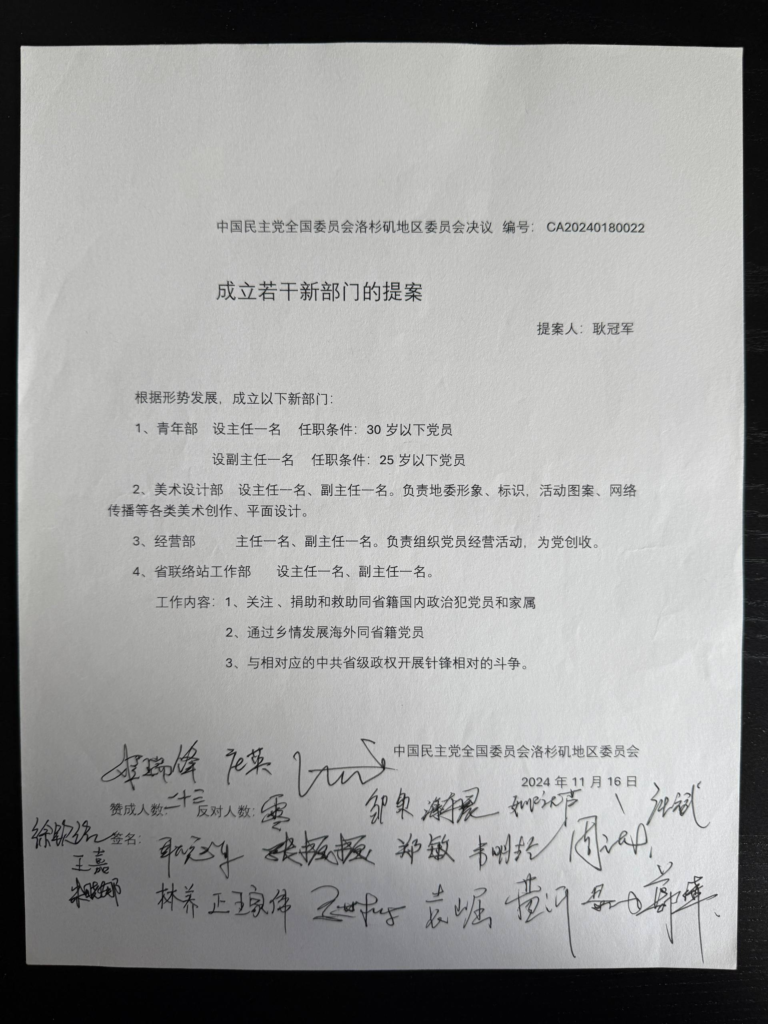 中国民主党全国委员会洛杉矶地区委员会决议 编号： CA20240180022
成立若干新部门的提案
提案人：耿冠军
根据形势发展，成立以下新部门：
1、青年部 设主任一名 任职条件：30 岁以下党员
设副主任一名 任职条件：25 岁以下党员
2、美术设计部 设主任一名、副主任一名。负责地委形象、标识，活动图案、网络
传播等各类美术创作、平面设计。
3、经营部 主任一名、副主任一名。负责组织党员经营活动，为党创收。
4、省联络站工作部 设主任一名、副主任一名。
工作内容：1、关注 、捐助和救助同省籍国内政治犯党员和家属
2、通过乡情发展海外同省籍党员
3、与相对应的中共省级政权开展针锋相对的斗争。
中国民主党全国委员会洛杉矶地区委员会
2024 年 11 月 16 日
赞成人数：二十三 反对人数：零
签名： 郑敏
王嘉
林养正 王家伟 袁崛